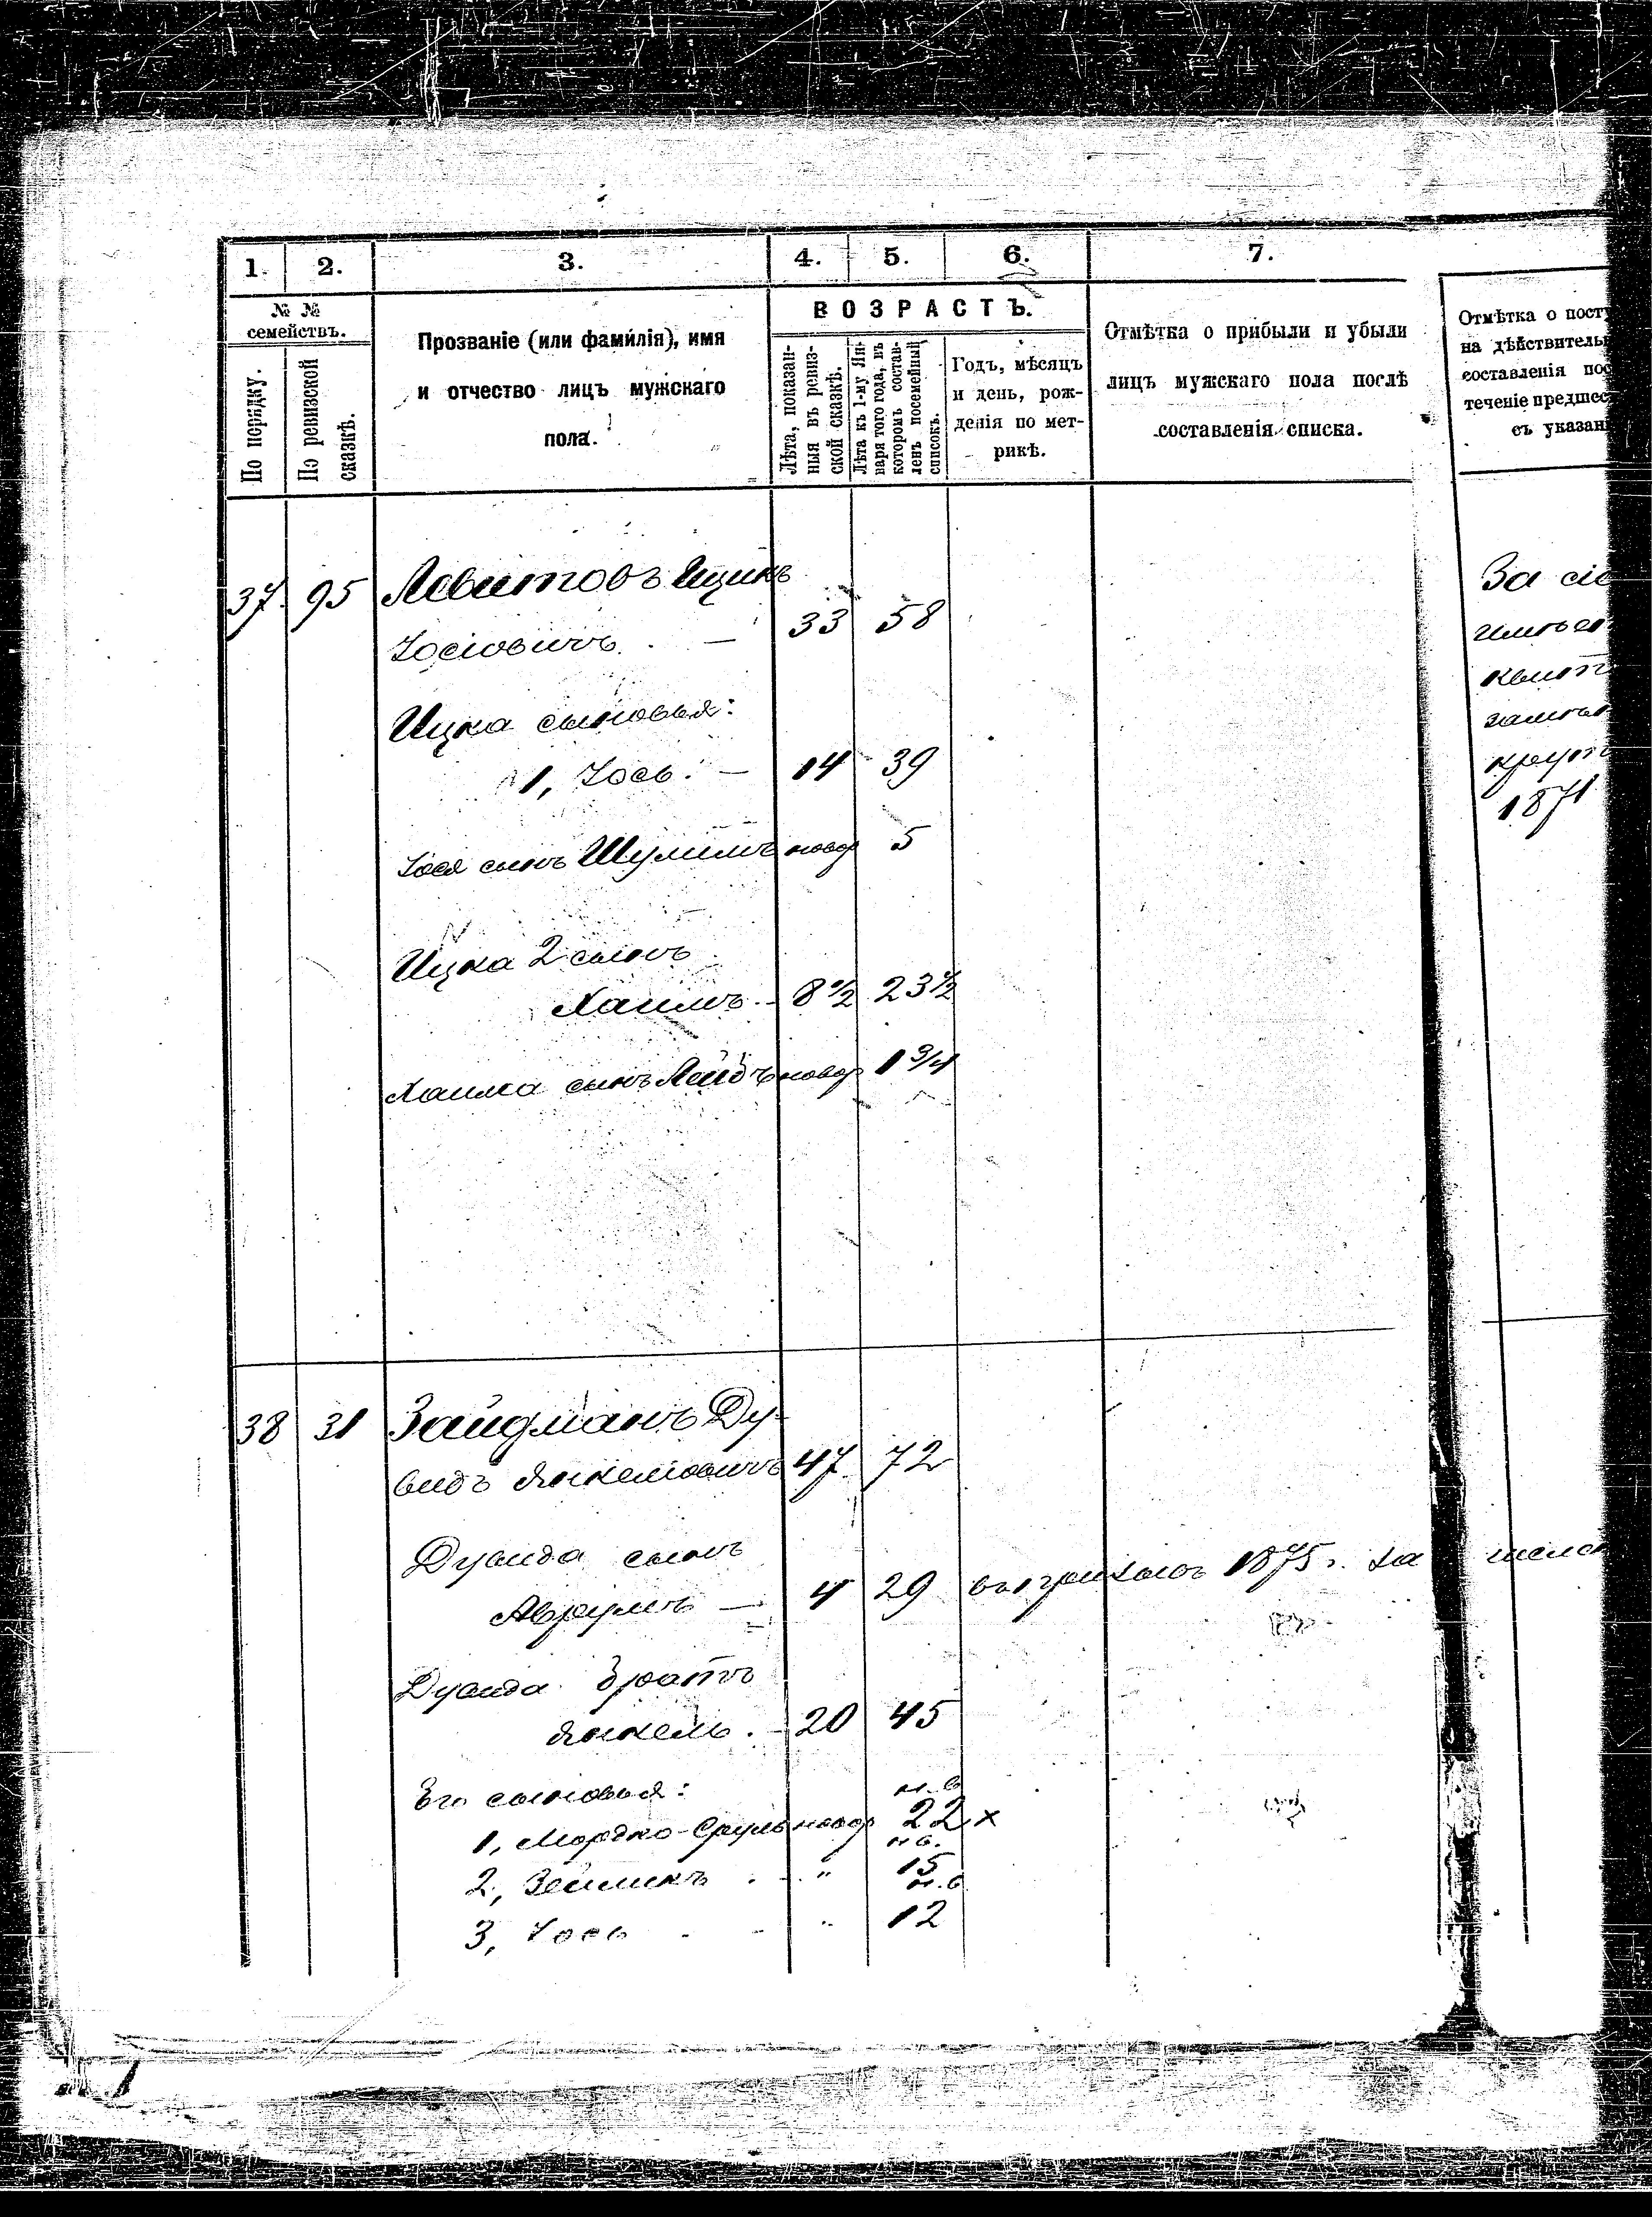 1. 2. 3. 4. 5. 6. 7.
№ №
семействъ.
По порядку.
По ревизской
сказкѣ.
Прозваніе (или фамилія), имя
и отчество лицъ мужскаго
пола.
ВОЗРАСТЪ.
Лѣта, показан-
ныя въ ревиз-
ской сказкѣ.
Лѣта къ 1-му Ян-
варя того года, въ
которомъ состав-
ленъ посемейный
списокъ.
Годъ, мѣсяцъ
и день, рож-
денія по мет-
рикѣ.
Отмѣтка о прибыли и убыли
лицъ мужскаго пола послѣ
составленія списка.
Отмѣтка о пост
на дѣйствитель
составленія пос
теченіе предшес
съ указан
37 95 Левитовъ Ицикъ
Іосіовичъ. — 33 58
Ицка сыновья:
1, Іось. — 14 39
Іося сынъ Шулимъ новор 5
Ицка 2 сынъ
Хаимъ. — 8 1/2 23 1/2
Хаима сынъ Лейбъ новор 1 3/4
За сі
имѣе
квит
замѣ
крут
1871
38 31 Зайдманъ Ду-
видъ Янкеліовичъ 47 72
Дувида сынъ
Аврумъ — 4 29 1875 г. за
Дувида братъ
Янкель. — 20 45
Его сыновья: н. в
1, Мордко-Сруль новор 22 х
н в.
2, Зейликъ . . " 15
н. в
3, Іось - - " 12